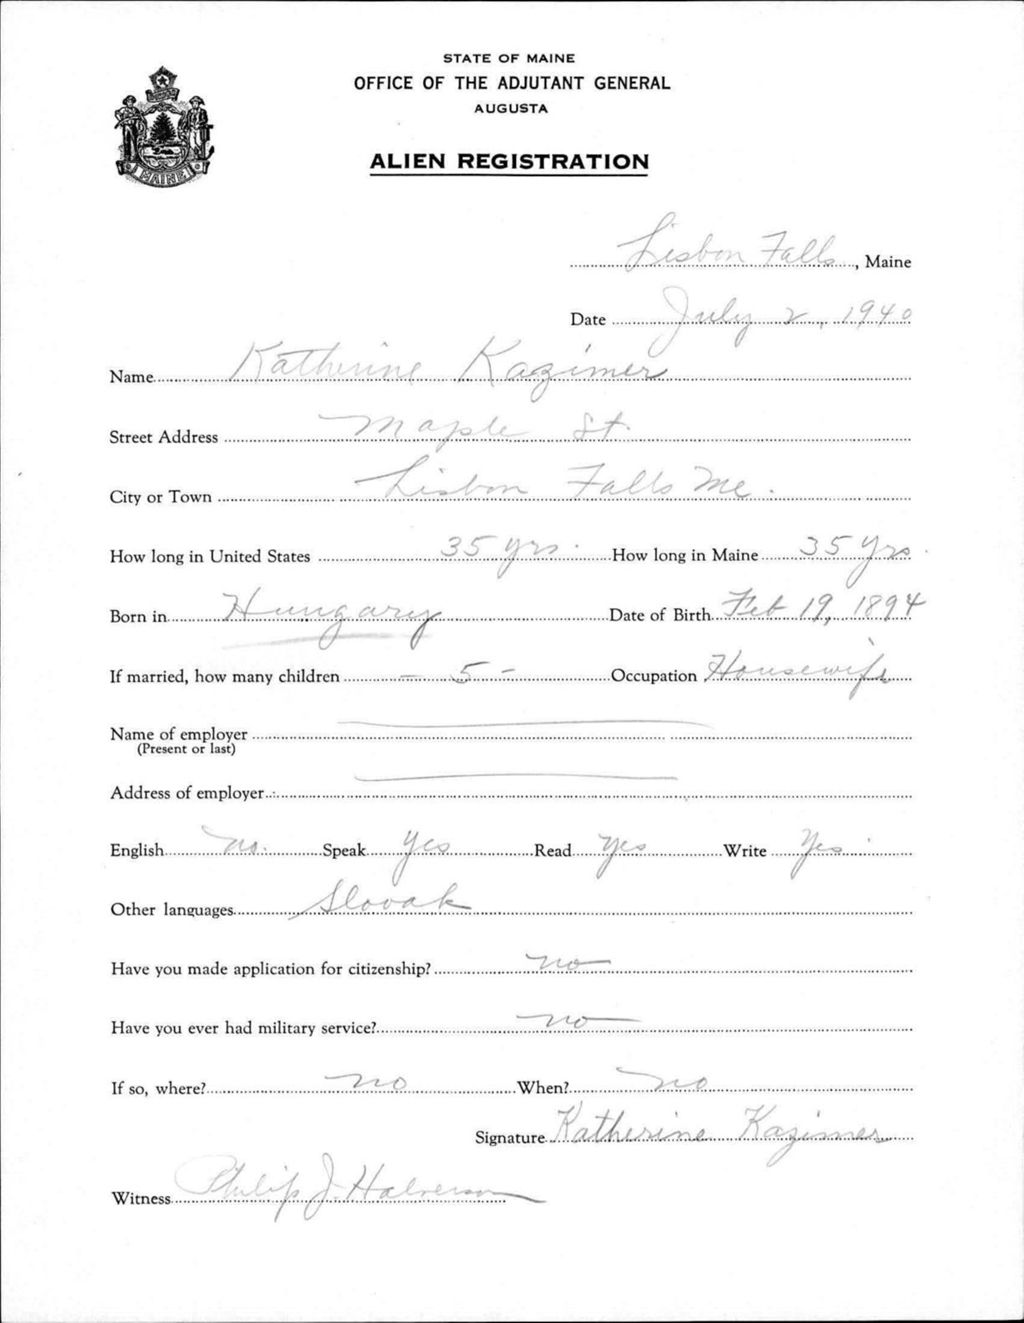 STATE OF MAINE
OFFICE OF THE ADJUTANT GENERAL
AUGUSTA
ALIEN REGISTRATION
MAINE
Lisbon Falls, Maine
Date July 2, 1940
Name Katherine Kazimer
Street Address Maple St.
City or Town Lisbon Falls Me.
How long in United States 35 yrs. How long in Maine 35 yrs.
Born in Hungary Date of Birth Feb 19, 1894
If married, how many children - 5 - Occupation Housewife
Name of employer
(Present or last)
Address of employer
English no. Speak yes Read yes Write yes.
Other languages Slovak
Have you made application for citizenship? no
Have you ever had military service? no
If so, where? no When? no
Signature Katherine Kazimer
Witness Philip J. Halverson